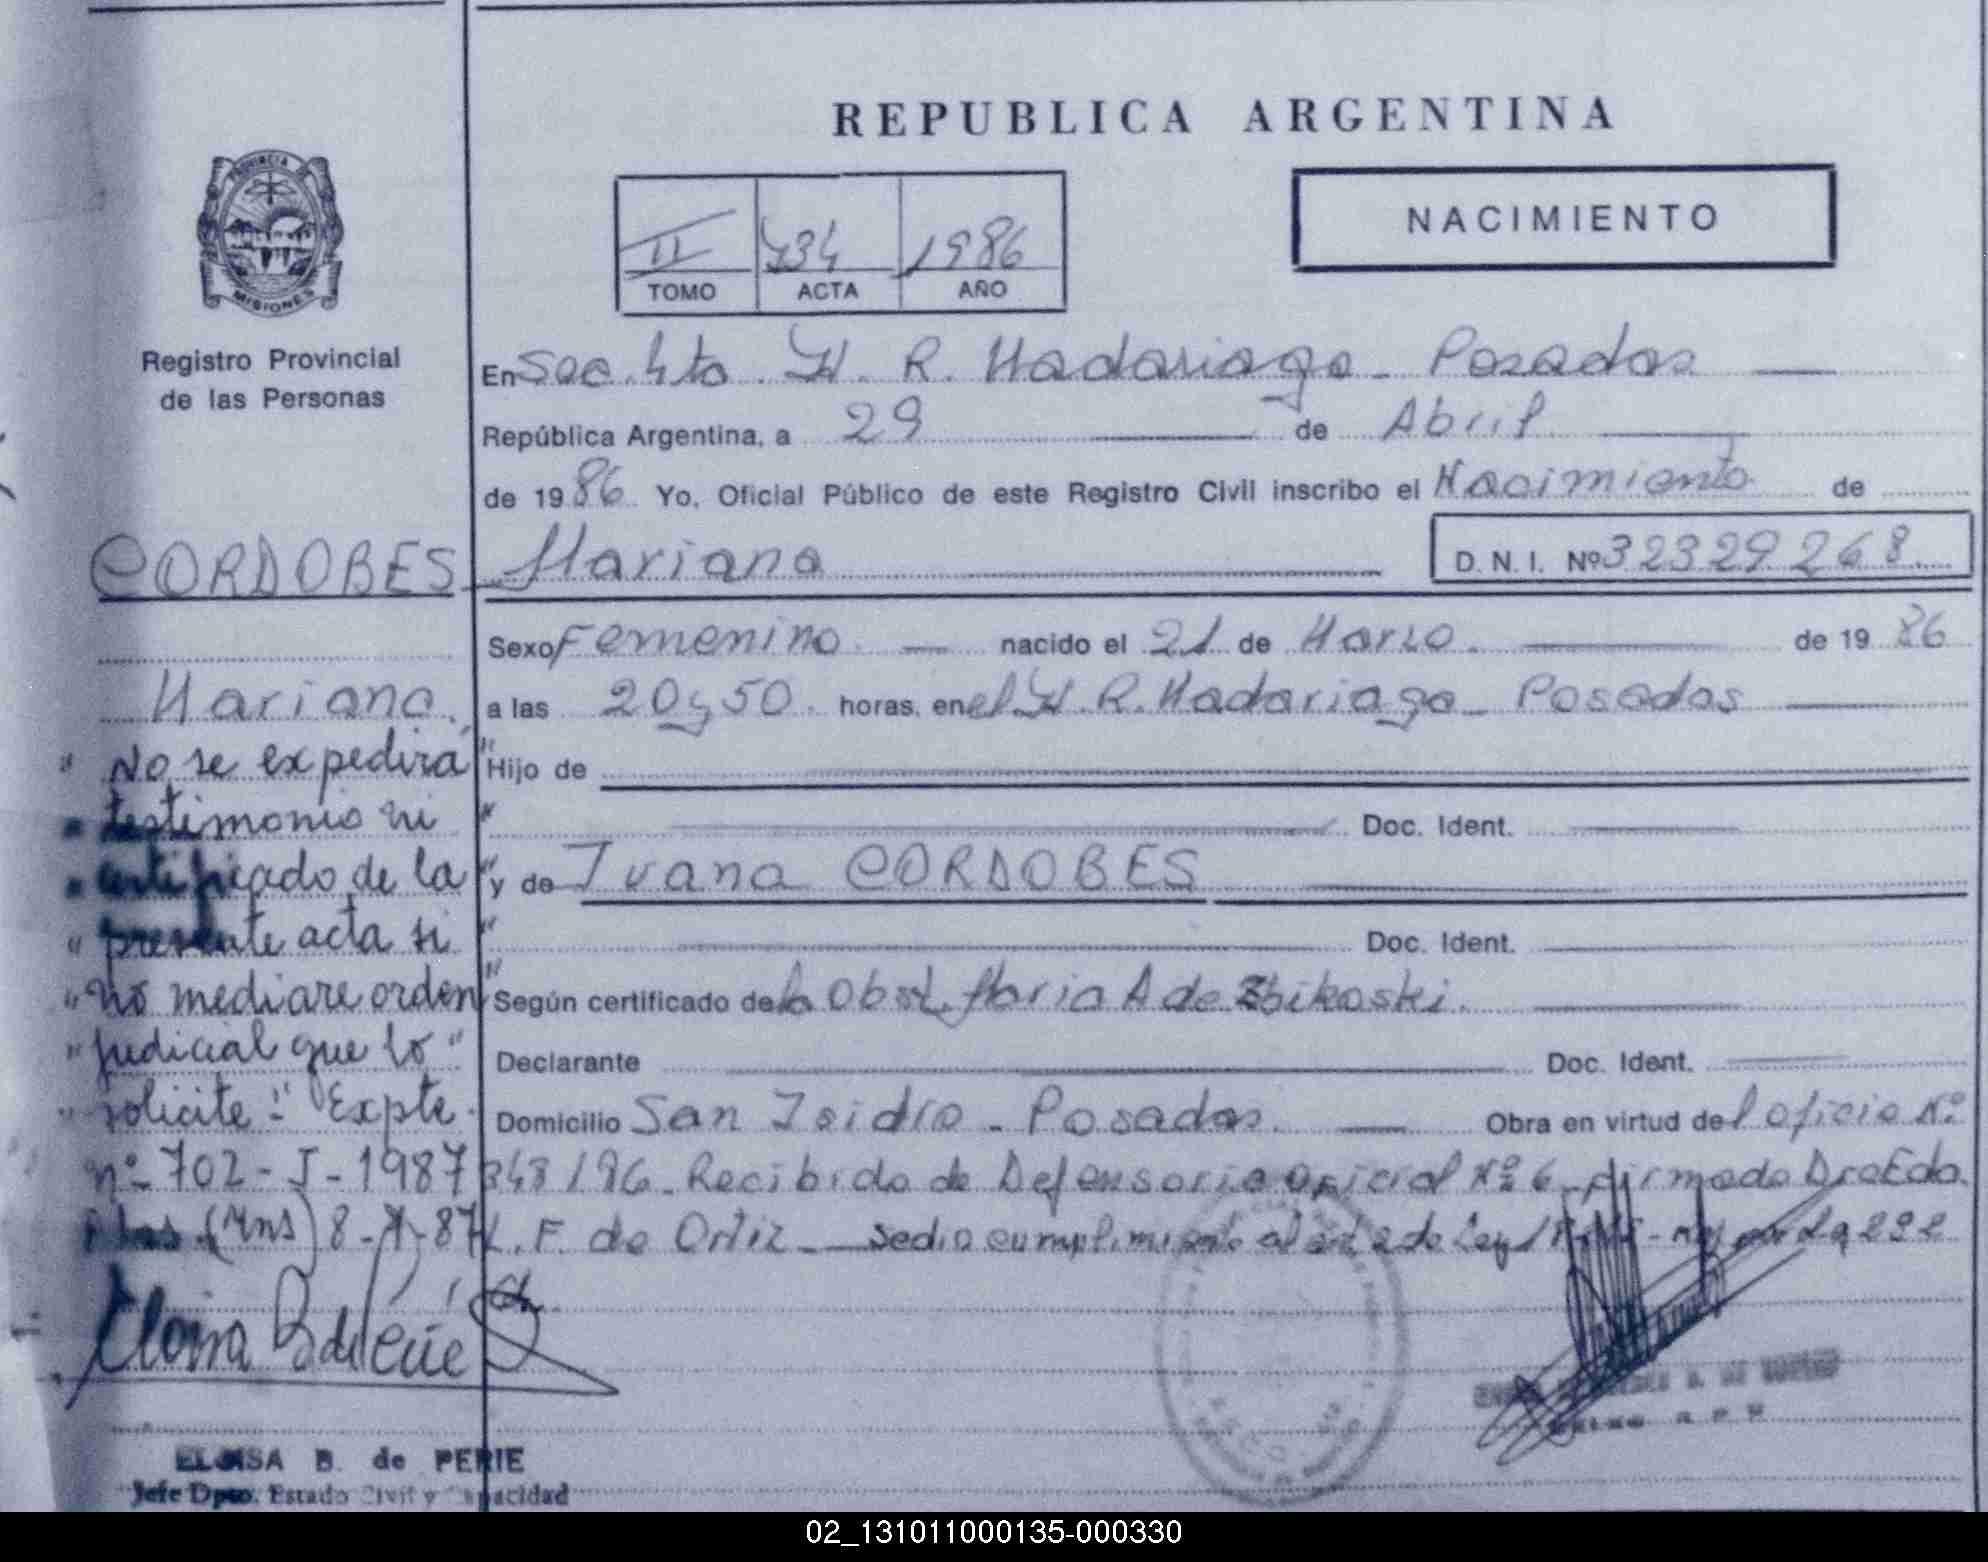 REPUBLICA ARGENTINA
NACIMIENTO
II 734 1986
TOMO ACTA AÑO
PROVINCIA DE
MISIONES
Registro Provincial
de las Personas
En Sec. 4to. H. R. Madariaga - Posadas
República Argentina, a 29 de Abril
de 1986 Yo, Oficial Público de este Registro Civil inscribo el Nacimiento de
CORDOBES Mariana D. N. I. Nº 32329268
Sexo Femenino nacido el 21 de Marzo de 1986
Mariana a las 20 y 50 horas, en el H. R. Madariaga - Posadas
Hijo de
Doc. Ident.
y de Ivana CORDOBES
Doc. Ident.
Según certificado de la Obst. Maria A de Zbikoski.
Declarante Doc. Ident.
Domicilio San Isidro - Posadas Obra en virtud del oficio Nº
348/86 - Recibido de Defensoria Oficial Nº 6 - firmado Dra Eda
L. F. de Ortiz - Sedio cumplimiento al de Ley
" No se expedirá "
" testimonio ni "
" certificado de la "
" presente acta si "
" no mediare orden "
" judicial que lo "
" solicite -" Expte
nº 702-J-1987
(Mns) 8-7-87
ELOISA B. de PERIE
Jefe Dpto. Estado Civil y Capacidad
02_131011000135-000330